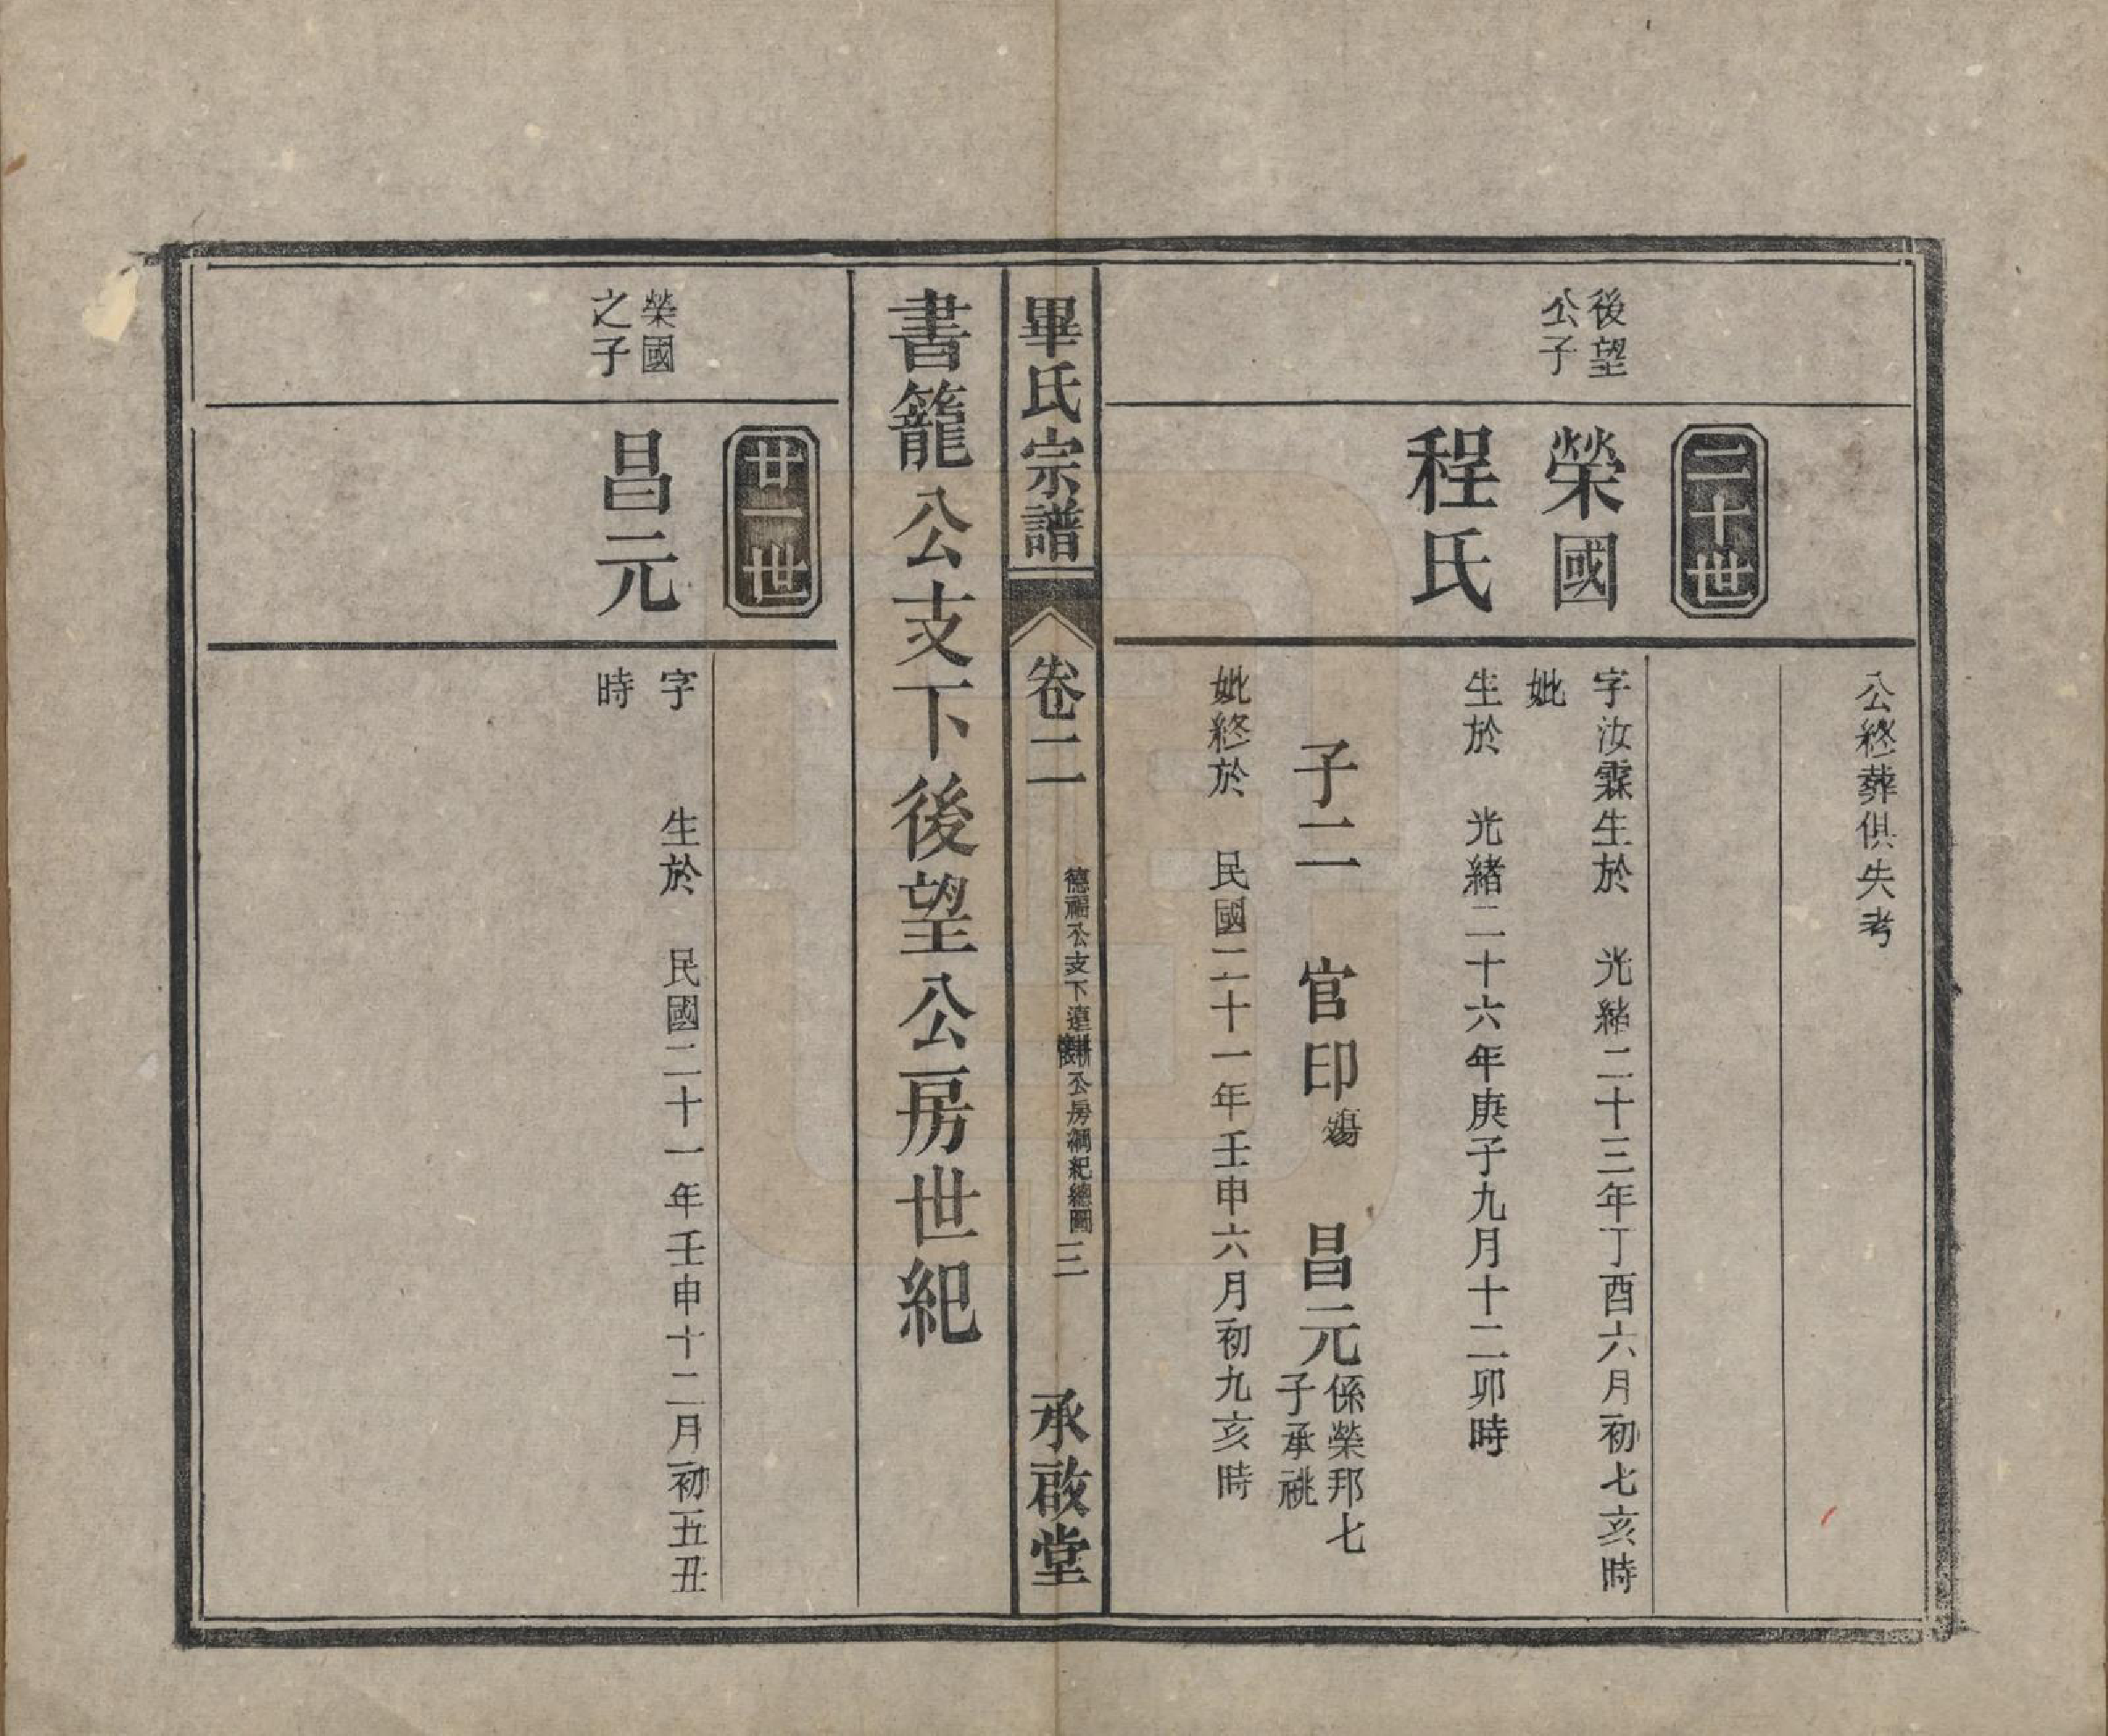 公終葬俱失考
二十世
後望
公子
榮國
字汝霖生於 光緒二十三年丁酉六月初七亥時
妣
程氏
生於 光緒二十六年庚子九月十二卯時
子二 官印殤 昌元係榮邦七
子承祧
妣終於 民國二十一年壬申六月初九亥時
畢氏宗譜 卷二 公支下 公房 紀總圖 三 承啟堂
書籠公支下後望公房世紀
廿一世
榮國
之子
昌元
字 生於 民國二十一年壬申十二月初五丑
時